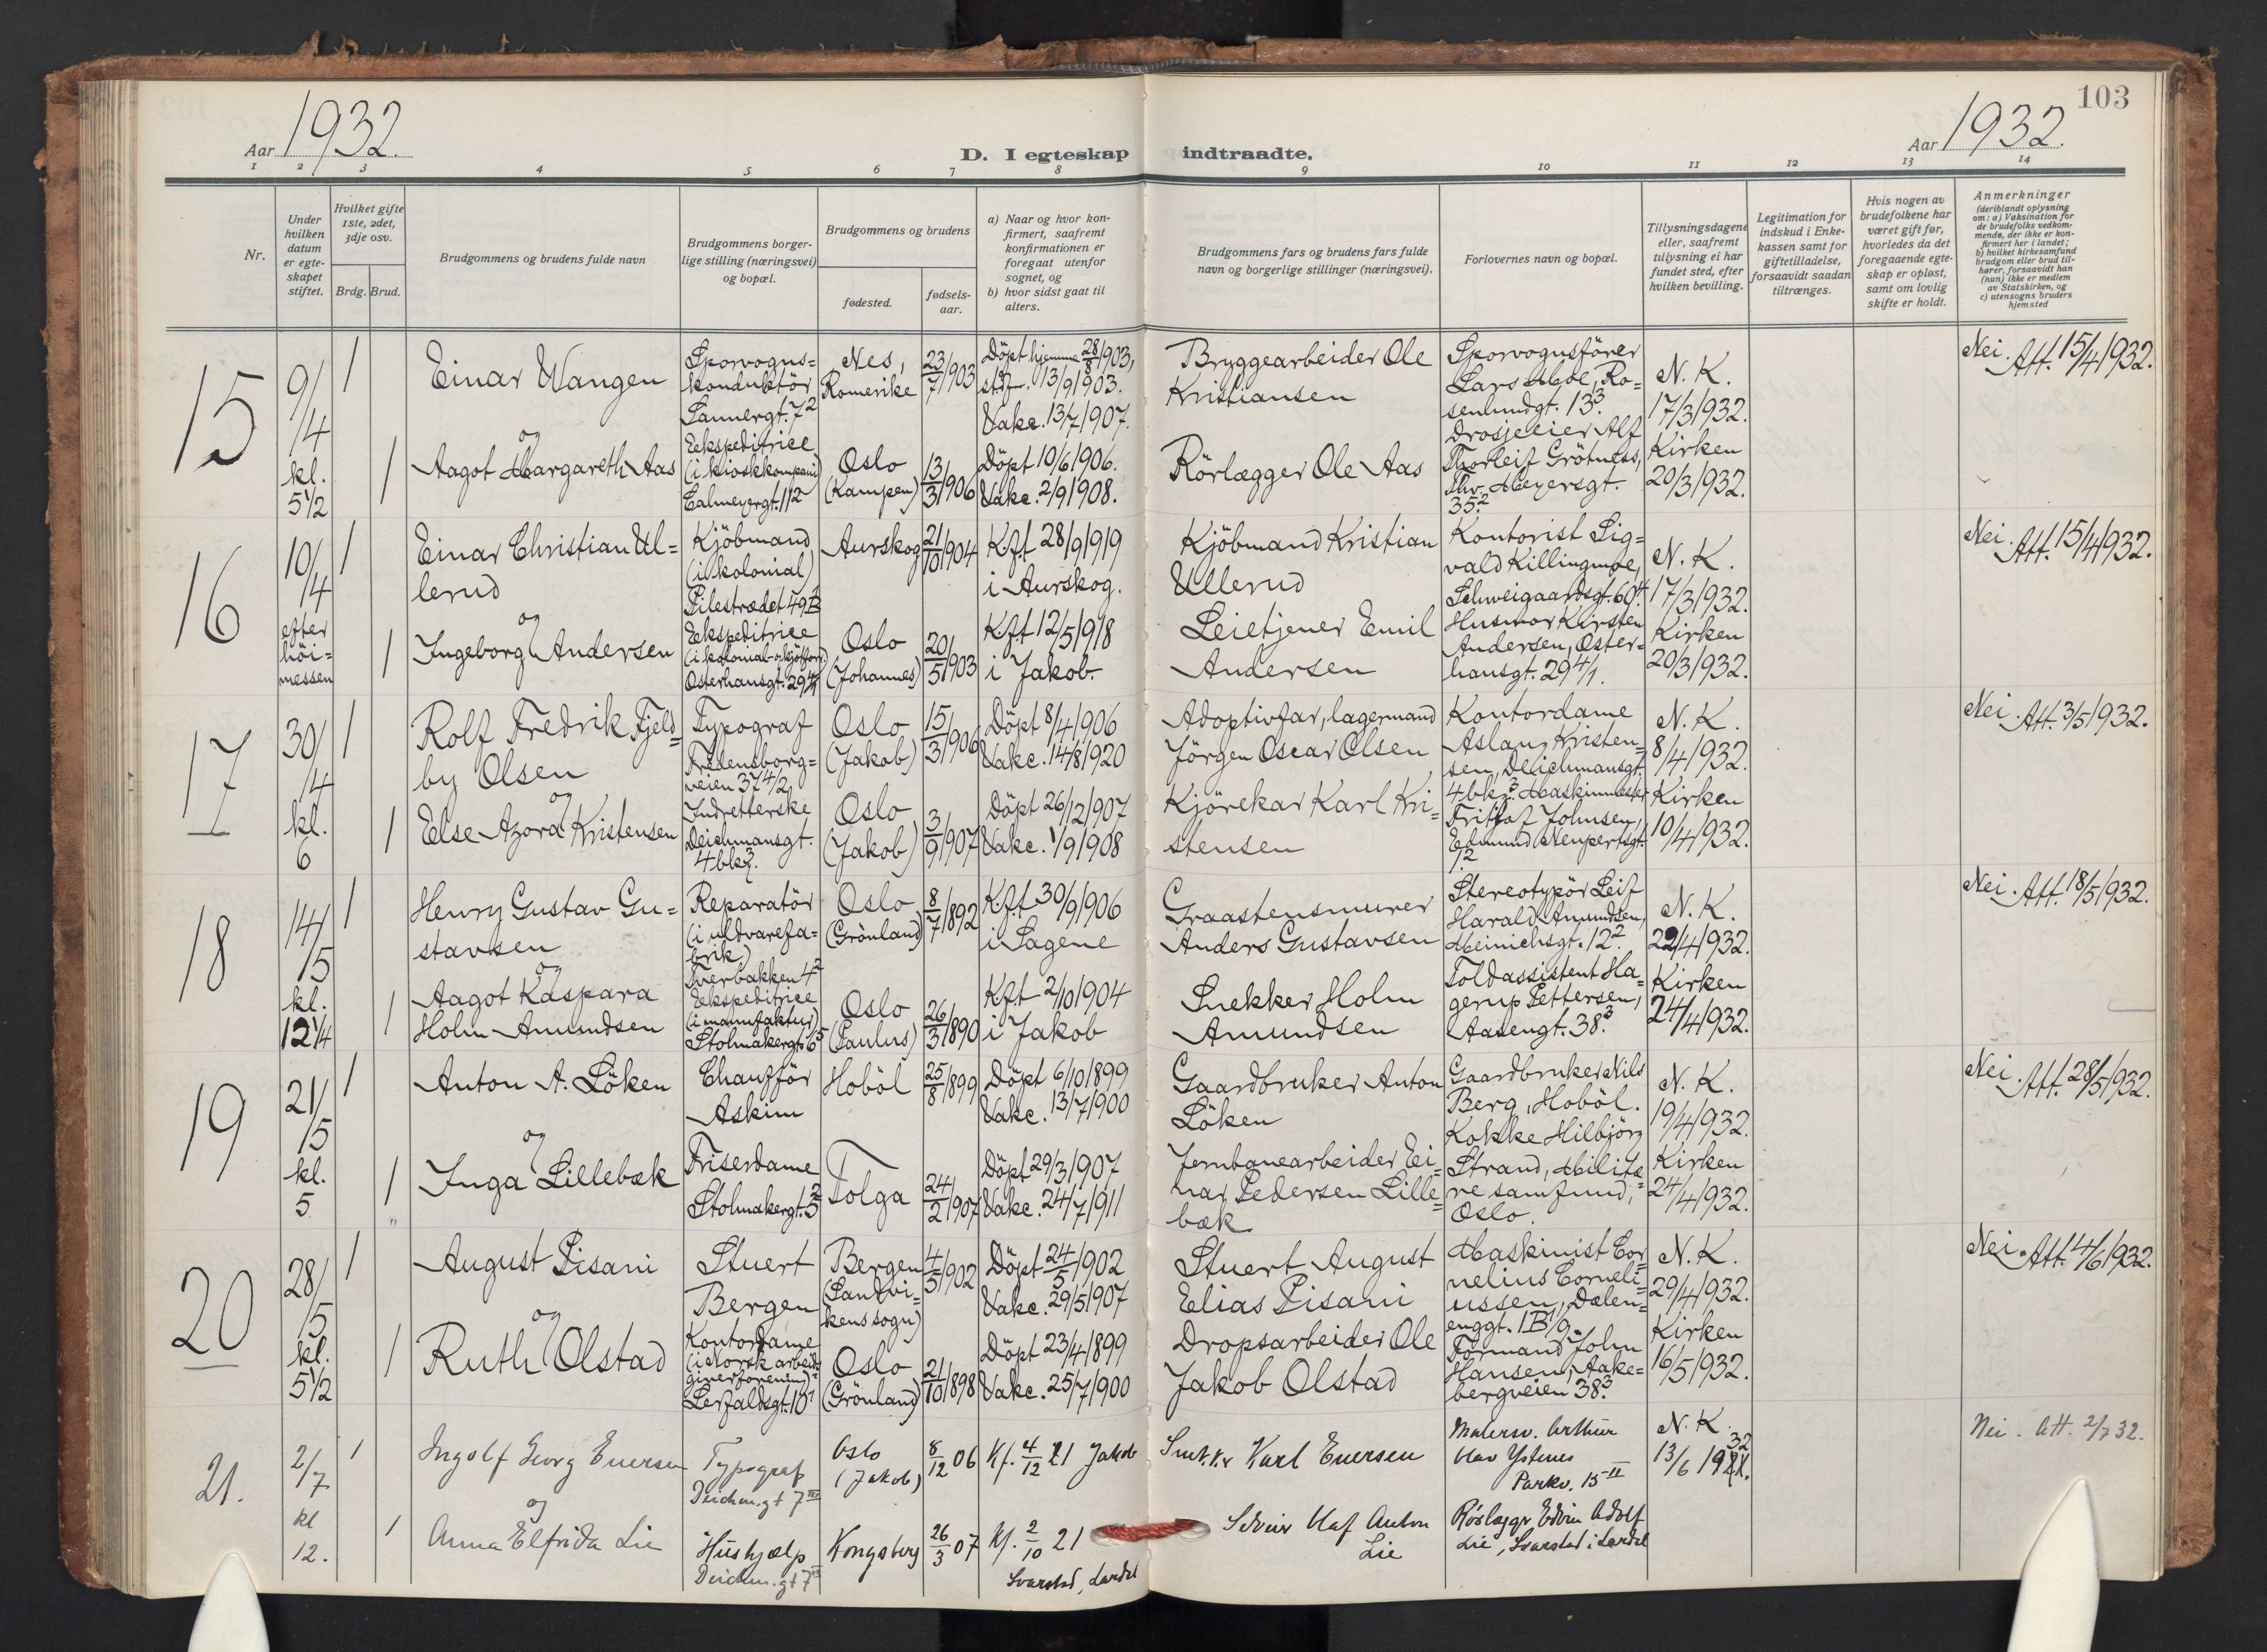 103
Aar 1932. D. I egteskap indtraadte. Aar 1932.
1 2 3 4 5 6 7 8 9 10 11 12 13 14
Nr.
Under hvilken datum er egteskapet stiftet.
Hvilket gifte 1ste, 2det, 3dje osv.
Brdg. Brud.
Brudgommens og brudens fulde navn
Brudgommens borgerlige stilling (næringsvei) og bopæl.
Brudgommens og brudens
fødested.
fødsels-aar.
a) Naar og hvor konfirmert, saafremt konfirmationen er foregaat utenfor sognet, og
b) hvor sidst gaat til alters.
Brudgommens fars og brudens fars fulde navn og borgerlige stillinger (næringsvei).
Forlovernes navn og bopæl.
Tillysningsdagene eller, saafremt tillysning ei har fundet sted, efter hvilken bevilling.
Legitimation for indskud i Enkekassen samt for giftetilladelse, forsaavidt saadan tiltrænges.
Hvis nogen av brudefolkene har været gift før, hvorledes da det foregaaende egteskap er opløst, samt om lovlig skifte er holdt.
Anmerkninger (deriblandt oplysning om: a) Vaksination for de brudefolks vedkommende, der ikke er konfirmert her i landet; b) hvilket kirkesamfund brudgom eller brud tilhører, forsaavidt han (hun) ikke er medlem av Statskirken, og c) utensogns bruders hjemsted
15
9/4 kl. 5 1/2
1
Einar Wangen
Sporvogns=
konduktör
Sannergt. 7²
Nes,
Romerike
23/7 1903
Döpt hjemme 28/8 1903,
st.f. 13/9 1903.
Vakc. 13/7 1907.
Bryggearbeider Ole
Kristiansen
Sporvognsförer
Lars Moe, Ro=
senlundgt. 13³.
N. K.
17/3 1932.
Nei. Att. 15/4 1932.
og
1
Aagot Margareth Aas
Ekspeditrice
(i kioskkompani)
Calmeyergt. 11²
Oslo
(Kampen)
13/3 1906
Döpt 10/6 1906.
Vakc. 2/9 1908.
Rörlægger Ole Aas
Drosjeeier Alf
Thorleif Grötness,
Thv. Meyersgt.
35².
Kirken
20/3 1932.
16
10/4 efter höi=messen
1
Einar Christian Ul=
lerud
Kjöbmand
(i kolonial)
Pilestrædet 49B
Aurskog
21/10 1904
K.f.t 28/9 1919
i Aurskog.
Kjöbmand Kristian
Ullerud
Kontorist Sig=
vald Killingmoe,
Schweigaardsgt. 60⁴.
N. K.
17/3 1932.
Nei. Att. 15/4 1932.
og
1
Ingeborg Andersen
Ekspeditrice
Osterhausgt. 29 4/1
Oslo
(Johannes)
20/5 1903
K.f.t 12/5 1918
i Jakob.
Leietjener Emil
Andersen
Husmor Kirsten
Andersen, Oster=
hausgt. 29 4/1.
Kirken
20/3 1932.
17
30/4 kl. 6
1
Rolf Fredrik Fjeld=
by Olsen
Typograf
Fredensborg=
veien 37 4/2
Oslo
(Jakob)
15/3 1906
Döpt 8/4 1906
Vakc. 14/8 1920
Adoptivfar, lagermand
Jörgen Oscar Olsen
Kontordame
Aslaug Kristen=
sen, Deichmansgt.
4 bk³.
N. K.
8/4 1932.
Nei. Att. 3/5 1932.
og
1
Else Azora Kristensen
Indretterske
Deichmansgt.
4 bk³.
Oslo
(Jakob)
3/9 1907
Döpt 26/12 1907
Vakc. 1/9 1908
Kjörekar Karl Kri=
stensen
Maskinmester
Fritjof Johnsen,
Edmund Neupertsgt.
1².
Kirken
10/4 1932.
18
14/5 kl. 12 1/4
1
Henry Gustav Gu=
stavsen
Reparatör
(i uldvarefa=
brik)
Tverbakken 4²
Oslo
(Grönland)
8/7 1892
K.f.t 30/9 1906
i Sagene
Graastensmurer
Anders Gustavsen
Stereotypör Leif
Harald Amundsen,
Heinichsgt. 12².
N. K.
22/4 1932.
Nei. Att. 18/5 1932.
og
1
Aagot Kaspara
Holm Amundsen
Ekspeditrice
(i manufaktur)
Stolmakergt. 6⁵
Oslo
(Paulus)
26/3 1890
K.f.t 2/10 1904
i Jakob
Snekker Holm
Amundsen
Toldassistent Ha=
gerup Pettersen,
Aasengt. 38³.
Kirken
24/4 1932.
19
21/5 kl. 5
1
Anton A. Löken
Chaufför
Askim
Hoböl
25/8 1899
Döpt 6/10 1899
Vakc. 13/7 1900
Gaardbruker Anton
Löken
Gaardbruker Nils
Berg, Hoböl.
N. K.
19/4 1932.
Nei. Att. 28/5 1932.
og
1
Inga Lillebæk
Friserdame
Stolmakergt.
Tolga
24/2 1907
Döpt 29/3 1907
Vakc. 24/7 1911
Jernbanearbeider Ei=
nar Pedersen Lille=
bæk
Kokke Hilbjörg
Strand, Militæ=
re samfund,
Oslo.
Kirken
24/4 1932.
20
28/5 kl. 5 1/2
1
August Pisani
Stuert
Bergen
Bergen
(Sandvi=
kens sogn)
4/5 1902
Döpt 24/5 1902
Vakc. 29/5 1907
Stuert August
Elias Pisani
Maskinist Cor=
nelius Corneli=
ussen, Dælen=
enggt. 1B
N. K.
29/4 1932.
Nei. Att. 4/6 1932.
og
1
Ruth Olstad
Kontordame
(i Norsk arbeids=
giverforening)
Leirfaldsgt. 10¹
Oslo
(Grönland)
21/10 1898
Döpt 23/4 1899
Vakc. 25/7 1900
Dropsarbeider Ole
Jakob Olstad
Formand John
Hansen, Aake=
bergveien 38³.
Kirken
16/5 1932.
21.
2/7 kl 12.
1
Ingolf Georg Evensen
Typograf
Deichm.gt 7 III
Oslo
(Jakob)
8/12 06
Kf. 4/12 21 Jakob
Snekker Karl Evensen
Malersv. Arthur
Olav Ystenes
Parkv. 15 II
N. K.
13/6 1932.
Nei. Att. 2/7 32.
og
1
Anna Elfrida Lie
Hushjælp
Deichm.gt 7
Kongsberg
26/3 07
Kf. 2/10 21
Svarstad, Lardal
Olaf Anton
Lie
Rörlegger Edvin Adolf
Lie, Svarstad i Lardal